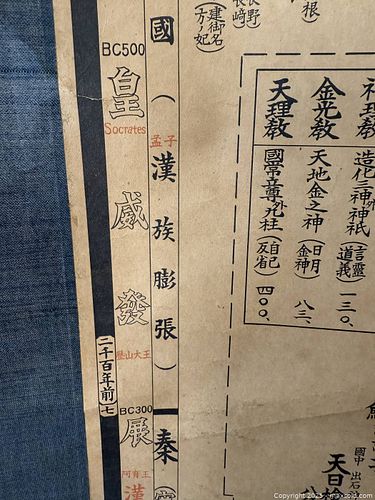 根
長野
長崎
建御名
方ノ妃
神理教
造化三神外神祇
(言霊
道義)
一三〇、
金光教
天地金之神
(日月
金神)
八三、
天理教
國常尊外九柱
(自己
反省)
四〇〇、
國中 出石
天日
國(漢族膨張)
孟子
秦
BC500
皇威發展
Socrates
歴山大王
BC300
阿育王
漢
二千百年前
七
Copyright 2025 - maxcold.com